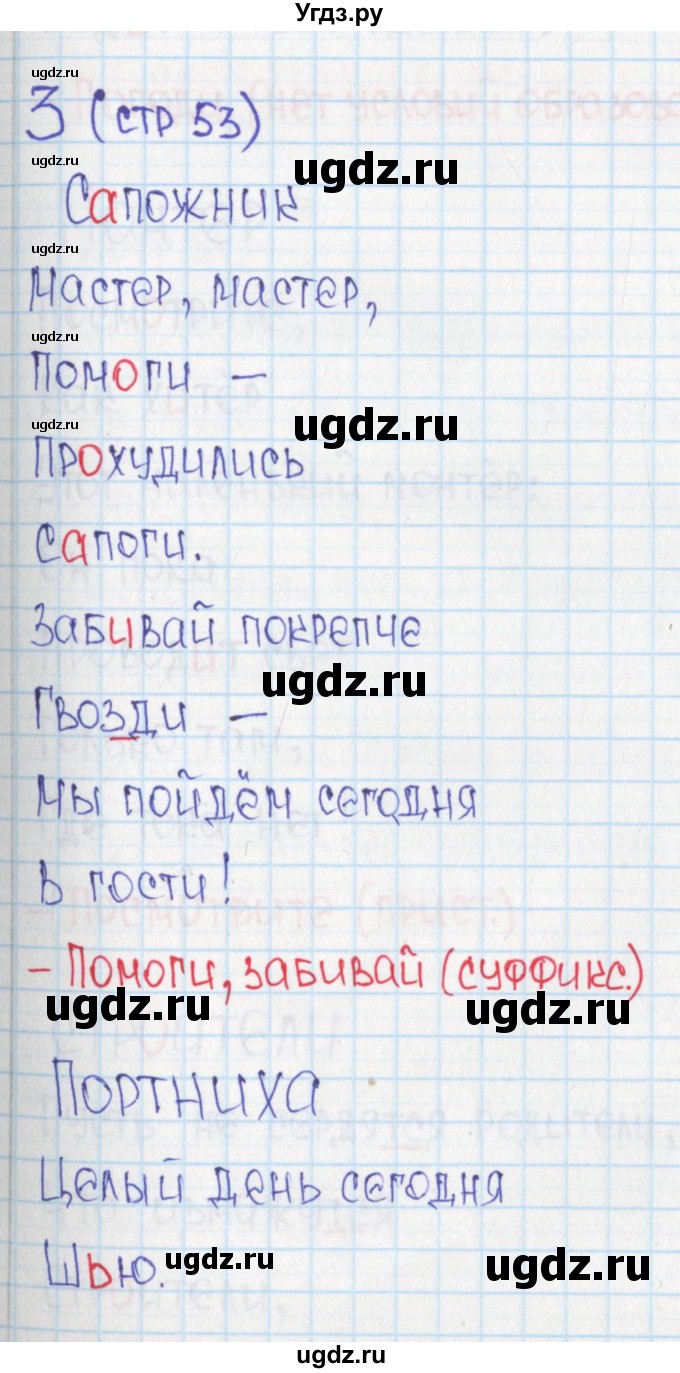 Угдз.ру
ugdz.ru
3 (стр 53)
ugdz.ru
Сапожник
ugdz.ru
Мастер, мастер,
ugdz.ru
Помоги –
ugdz.ru
ugdz.ru
Прохудились
Сапоги.
Забивай покрепче
ugdz.ru
Гвозди –
Мы пойдём сегодня
В гости!
– Помоги, забивай (суффикс.)
ugdz.ru ugdz.ru
Портниха
Целый день сегодня
Шью. ugdz.ru ugdz.ru
ugdz.ru